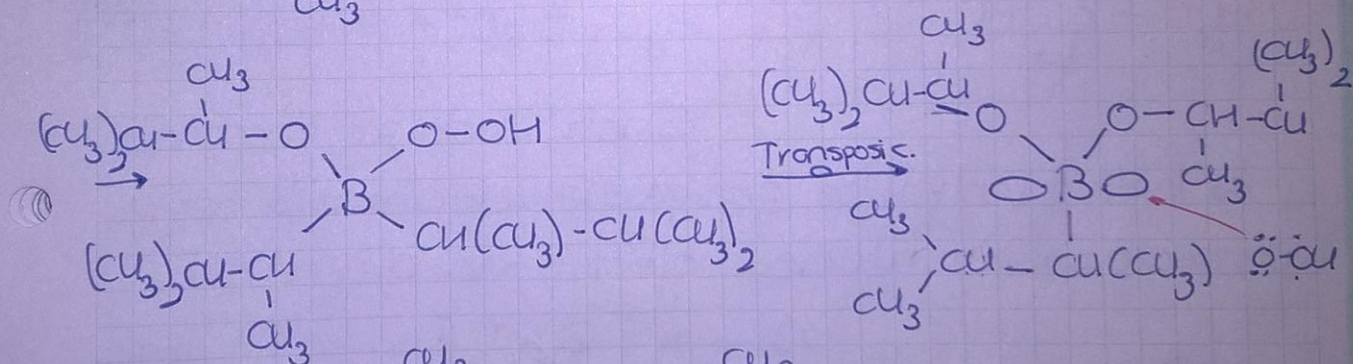 CH3
CH3
(CH3)2CH-CH-O
O-OH
B
(CH3)2CH-CH
CH(CH3)-CH(CH3)2
CH3
Transposic.
CH3
(CH3)2CH-CH-O
O-CH-CH
(CH3)2
CH3
B
CH3
CH3
CH-CH(CH3)
Ö-OH